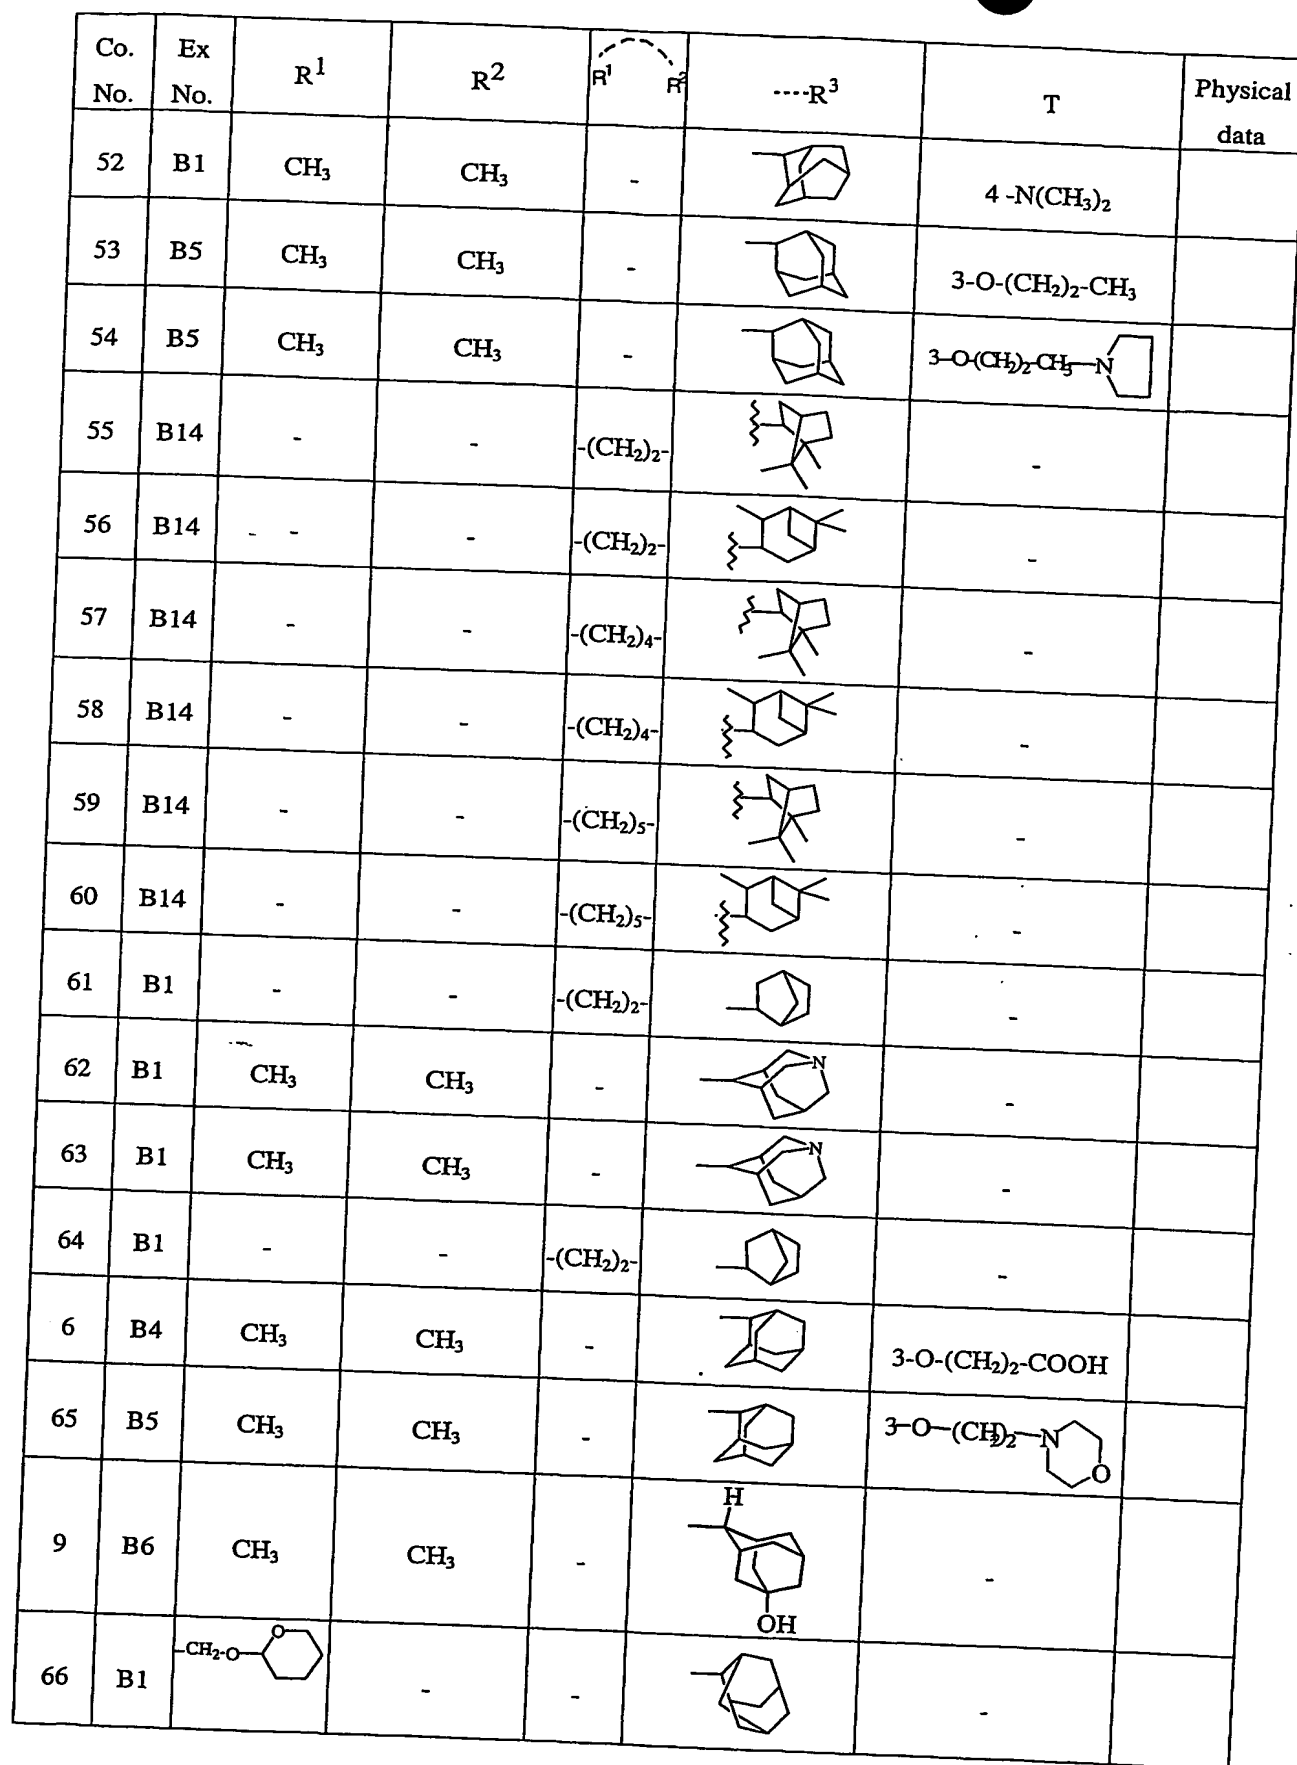 Co. No. Ex No. R1 R2 R1 R2 ----R3 T Physical data
52 B1 CH3 CH3 - 4 -N(CH3)2
53 B5 CH3 CH3 - 3-O-(CH2)2-CH3
54 B5 CH3 CH3 - 3-O-(CH2)2-CH3-N
55 B14 - - -(CH2)2- -
56 B14 - - - -(CH2)2- -
57 B14 - - -(CH2)4- -
58 B14 - - -(CH2)4- -
59 B14 - - -(CH2)5- -
60 B14 - - -(CH2)5- -
61 B1 - - -(CH2)2- -
62 B1 CH3 CH3 - N -
63 B1 CH3 CH3 - N -
64 B1 - - -(CH2)2- -
6 B4 CH3 CH3 - 3-O-(CH2)2-COOH
65 B5 CH3 CH3 - 3-O-(CH2)2-N O
9 B6 CH3 CH3 - H OH -
66 B1 -CH2-O- O - - -